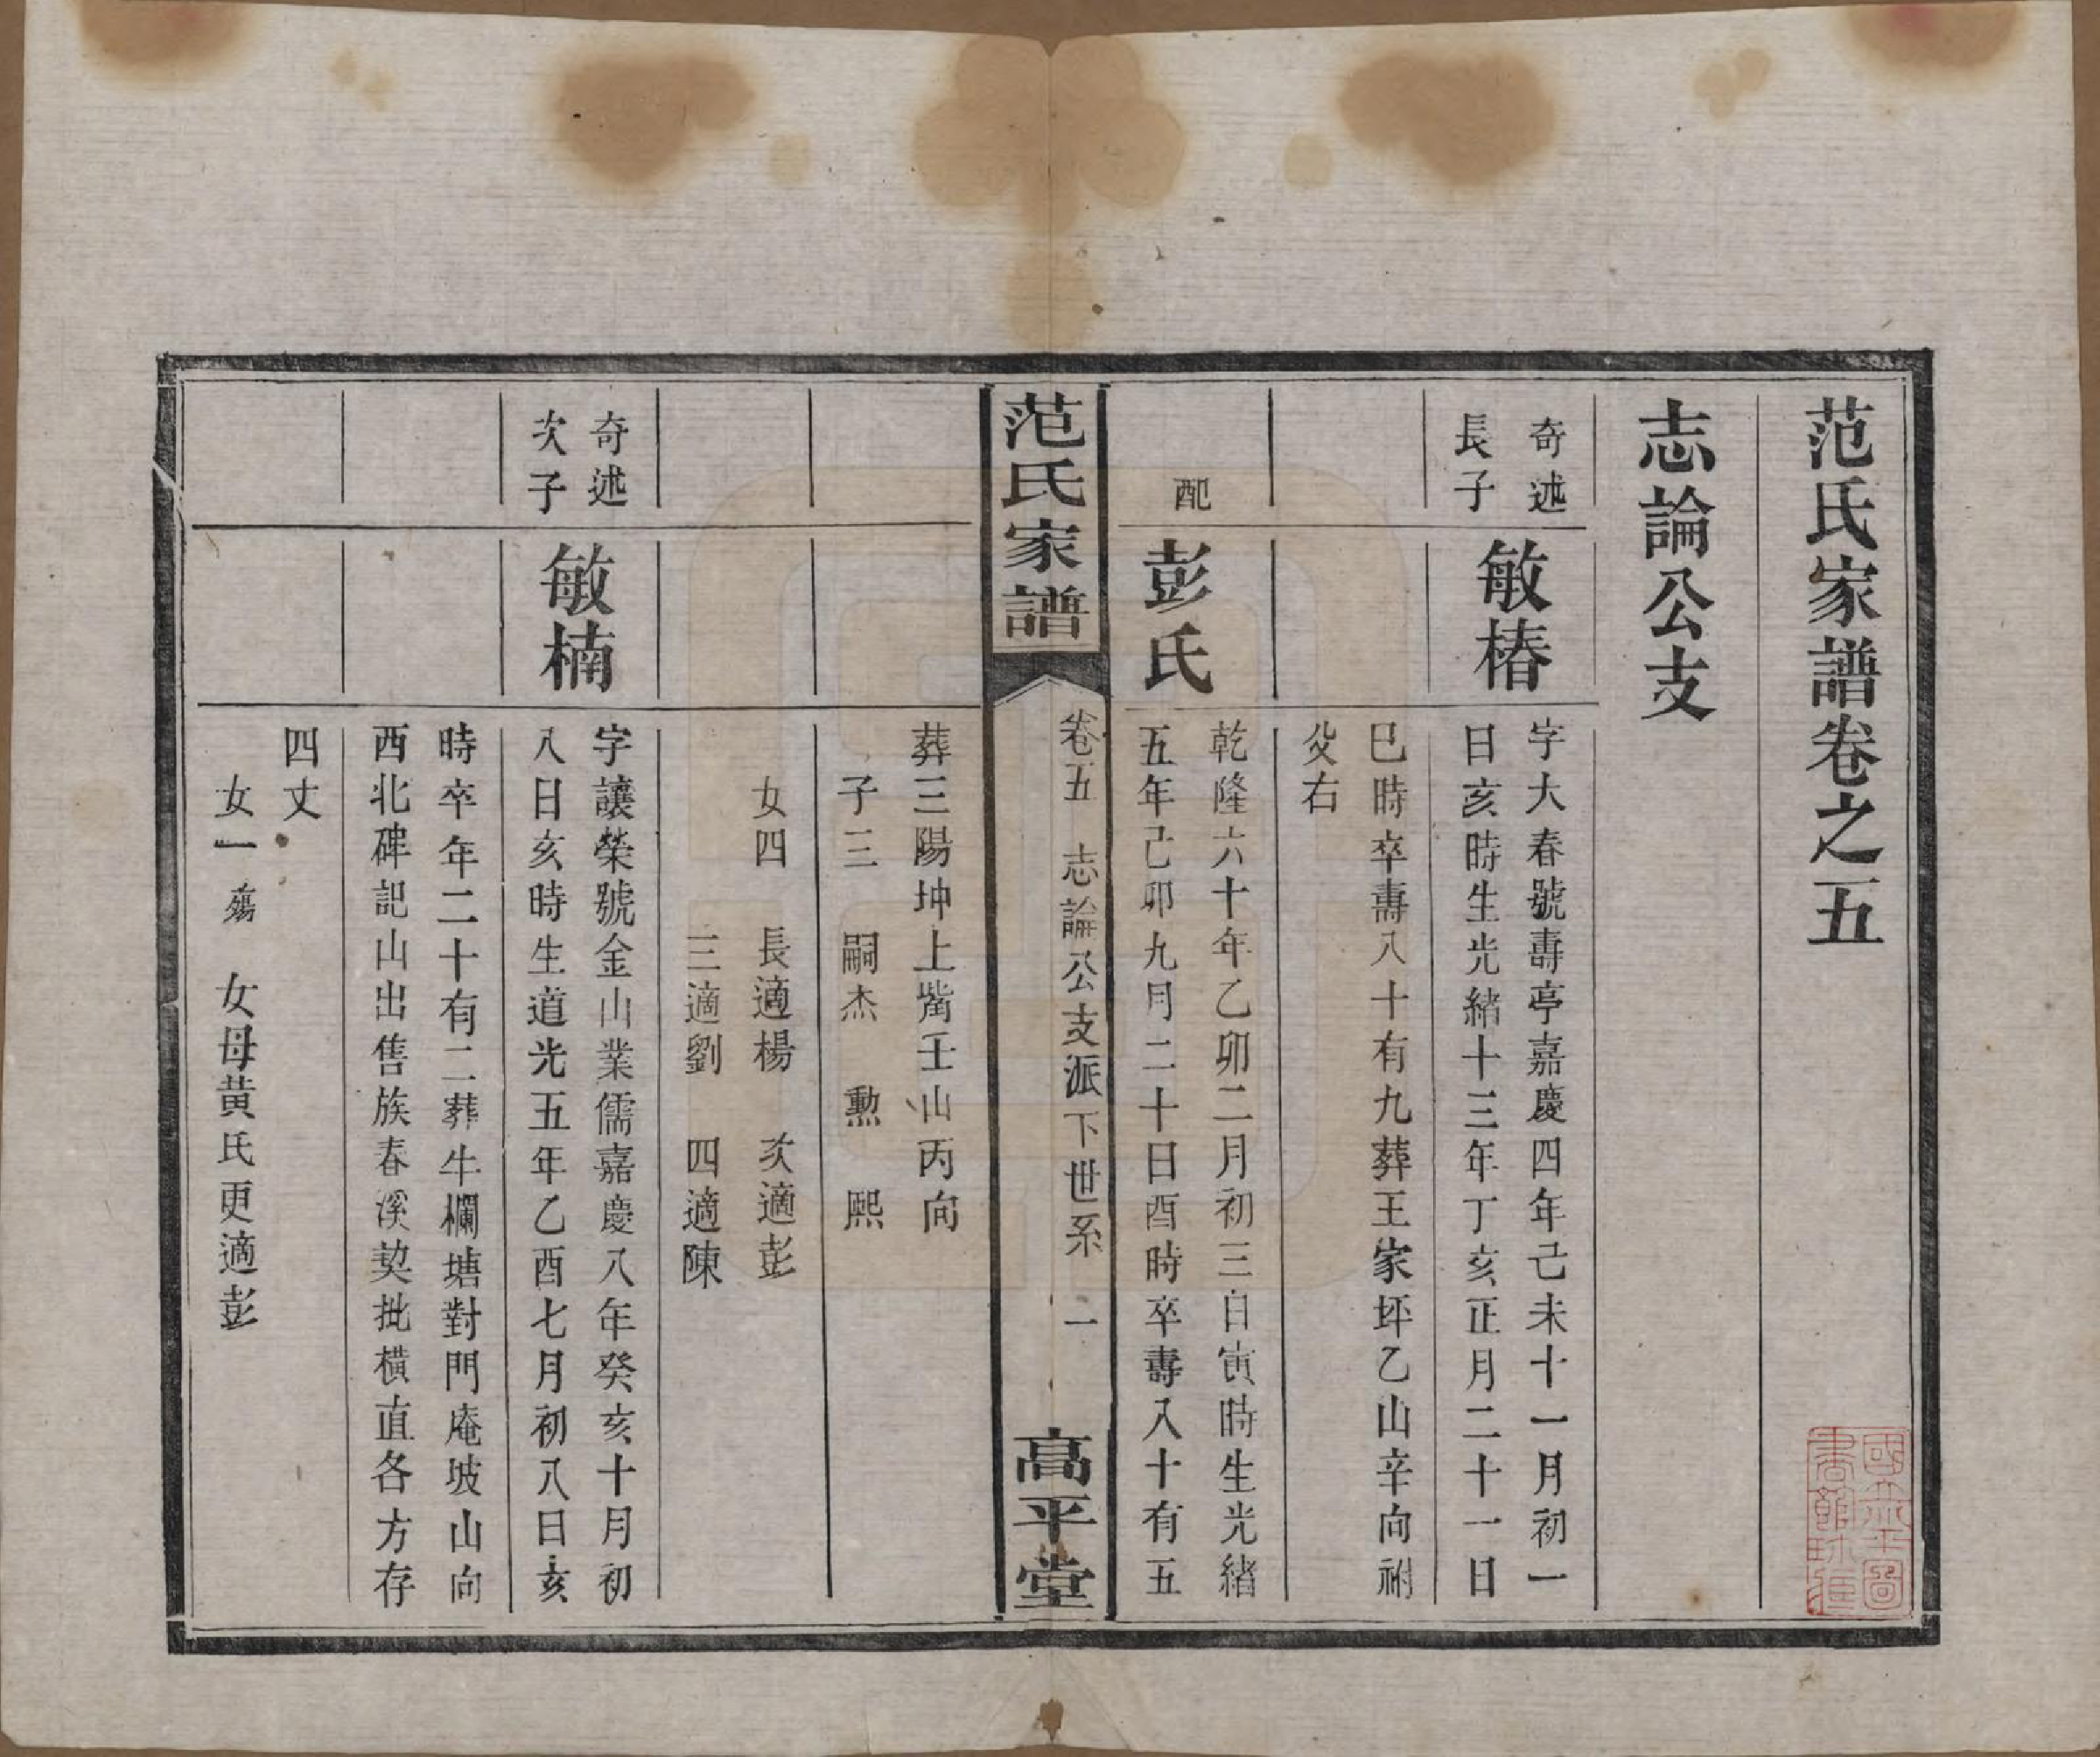 范氏家譜卷之五
志論公支
奇述
長子
敏椿
字大春號壽亭嘉慶四年己未十一月初一
日亥時生光緒十三年丁亥正月二十一日
巳時卒壽八十有九葬王家坪乙山辛向祔
父右
配
彭氏
乾隆六十年乙卯二月初三日寅時生光緒
五年己卯九月二十日酉時卒壽八十有五
范氏家譜
卷五 志論公支派下世系 一
高平堂
葬三陽坤上嘴壬山丙向
子三 嗣杰 勲 熙
女四 長適楊 次適彭
三適劉 四適陳
奇述
次子
敏楠
字讓榮號金山業儒嘉慶八年癸亥十月初
八日亥時生道光五年乙酉七月初八日亥
時卒年二十有二葬牛欄塘對門庵坡山向
西北碑記山出售族春溪契批橫直各方存
四丈
女一殤 女母黄氏更適彭
國立北平圖
書館珍藏